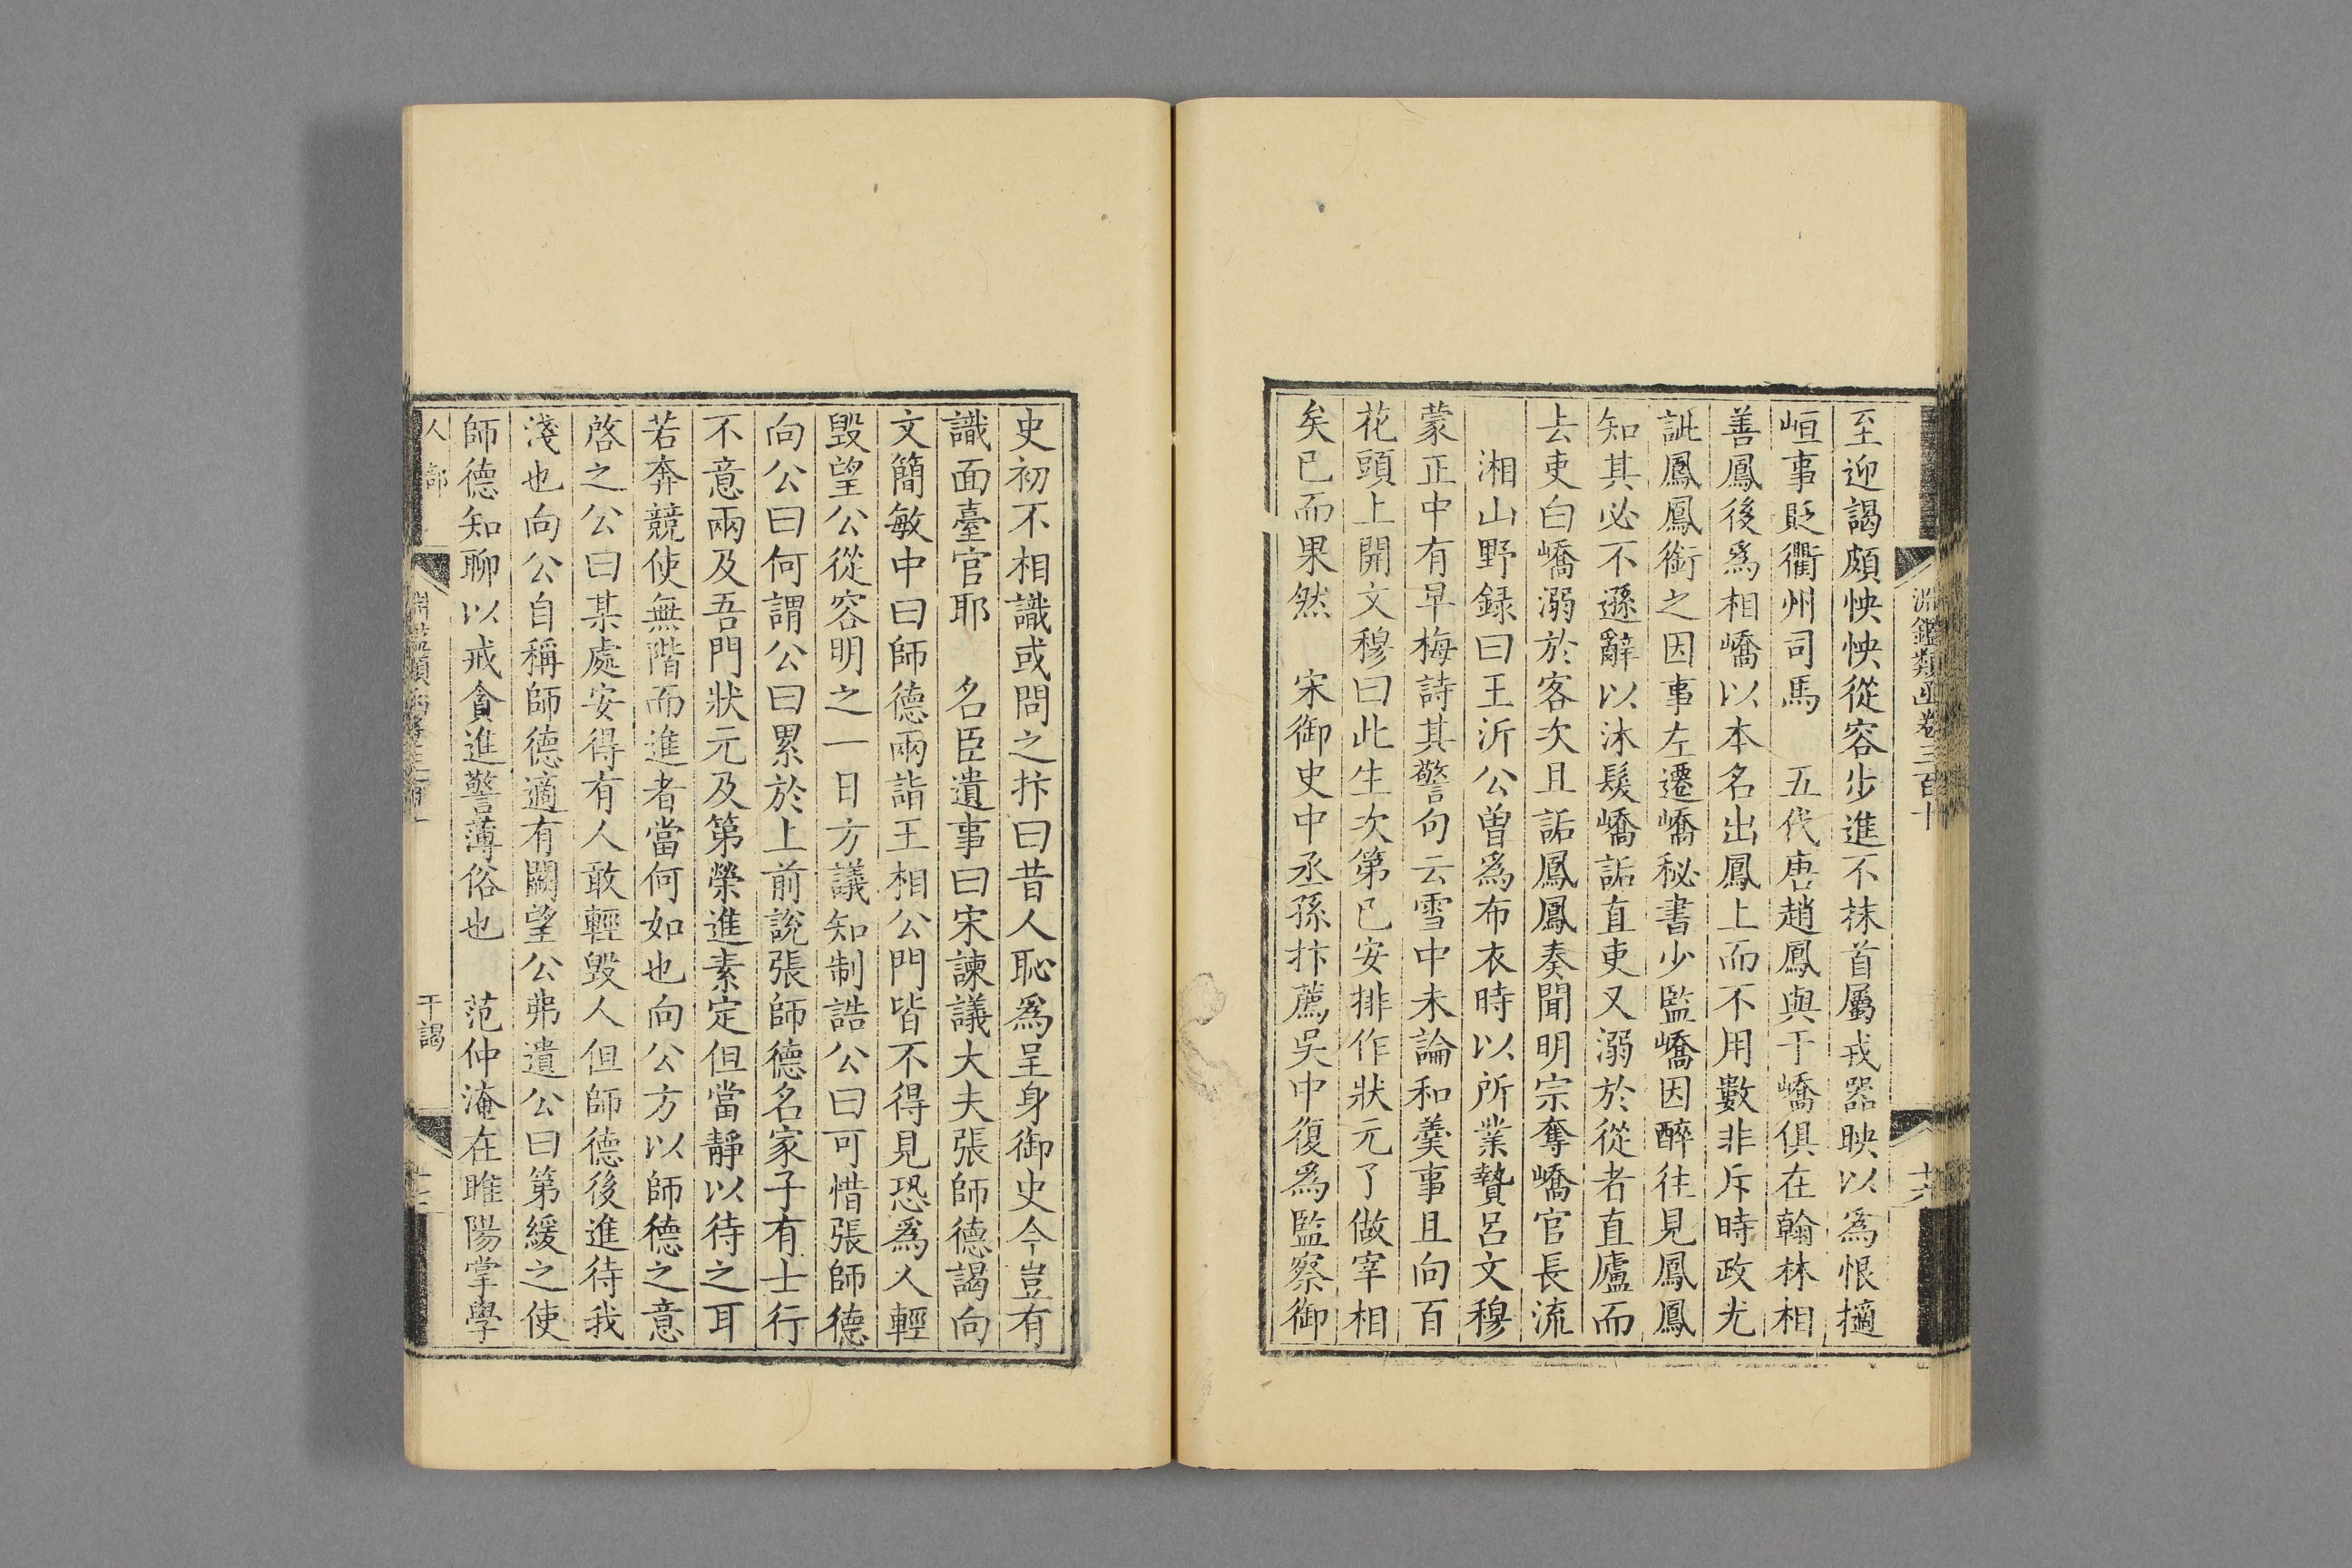 淵鑑類函卷三百十
十六
至迎謁頗怏怏從容步進不抹首屬戎器映以爲恨擿
峘事貶衢州司馬　五代唐趙鳳與于嶠俱在翰林相
善鳳後爲相嶠以本名出鳳上而不用數非斥時政尤
訿鳳鳳銜之因事左遷嶠秘書少監嶠因醉往見鳳鳳
知其必不遜辭以沐髮嶠詬直吏又溺於從者直廬而
去吏白嶠溺於客次且詬鳳鳳奏聞明宗奪嶠官長流
湘山野録曰王沂公曾爲布衣時以所業贄呂文穆
蒙正中有早梅詩其警句云雪中未論和羹事且向百
花頭上開文穆曰此生次第已安排作狀元了做宰相
矣已而果然　宋御史中丞孫抃薦吳中復爲監察御
史初不相識或問之抃曰昔人恥爲呈身御史今豈有
識面臺官耶　名臣遺事曰宋諫議大夫張師德謁向
文簡敏中曰師德兩詣王相公門皆不得見恐爲人輕
毀望公從容明之一日方議知制誥公曰可惜張師德
向公曰何謂公曰累於上前說張師德名家子有士行
不意兩及吾門狀元及第榮進素定但當靜以待之耳
若奔競使無階而進者當何如也向公方以師德之意
啓之公曰某處安得有人敢輕毀人但師德後進待我
淺也向公自稱師德適有闕望公弗遺公曰第緩之使
師德知聊以戒貪進警薄俗也　范仲淹在睢陽掌學
人部
干謁